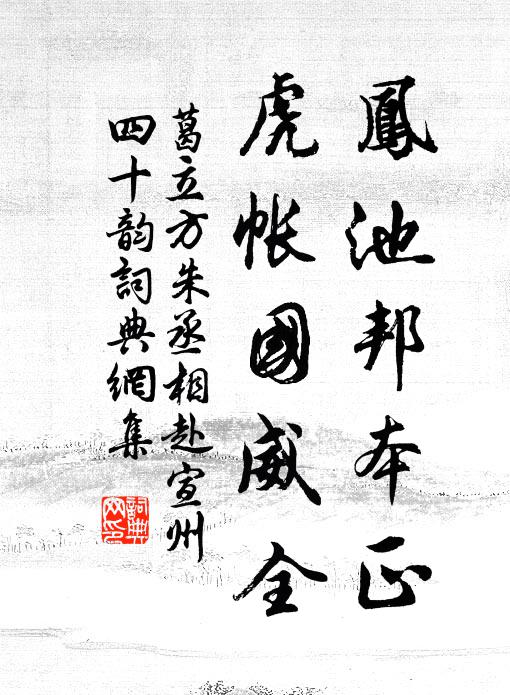 鳳池邦本正
虎帐國威全
葛立方朱丞相赴宣州
四十韵詞典網集
詞典
网印